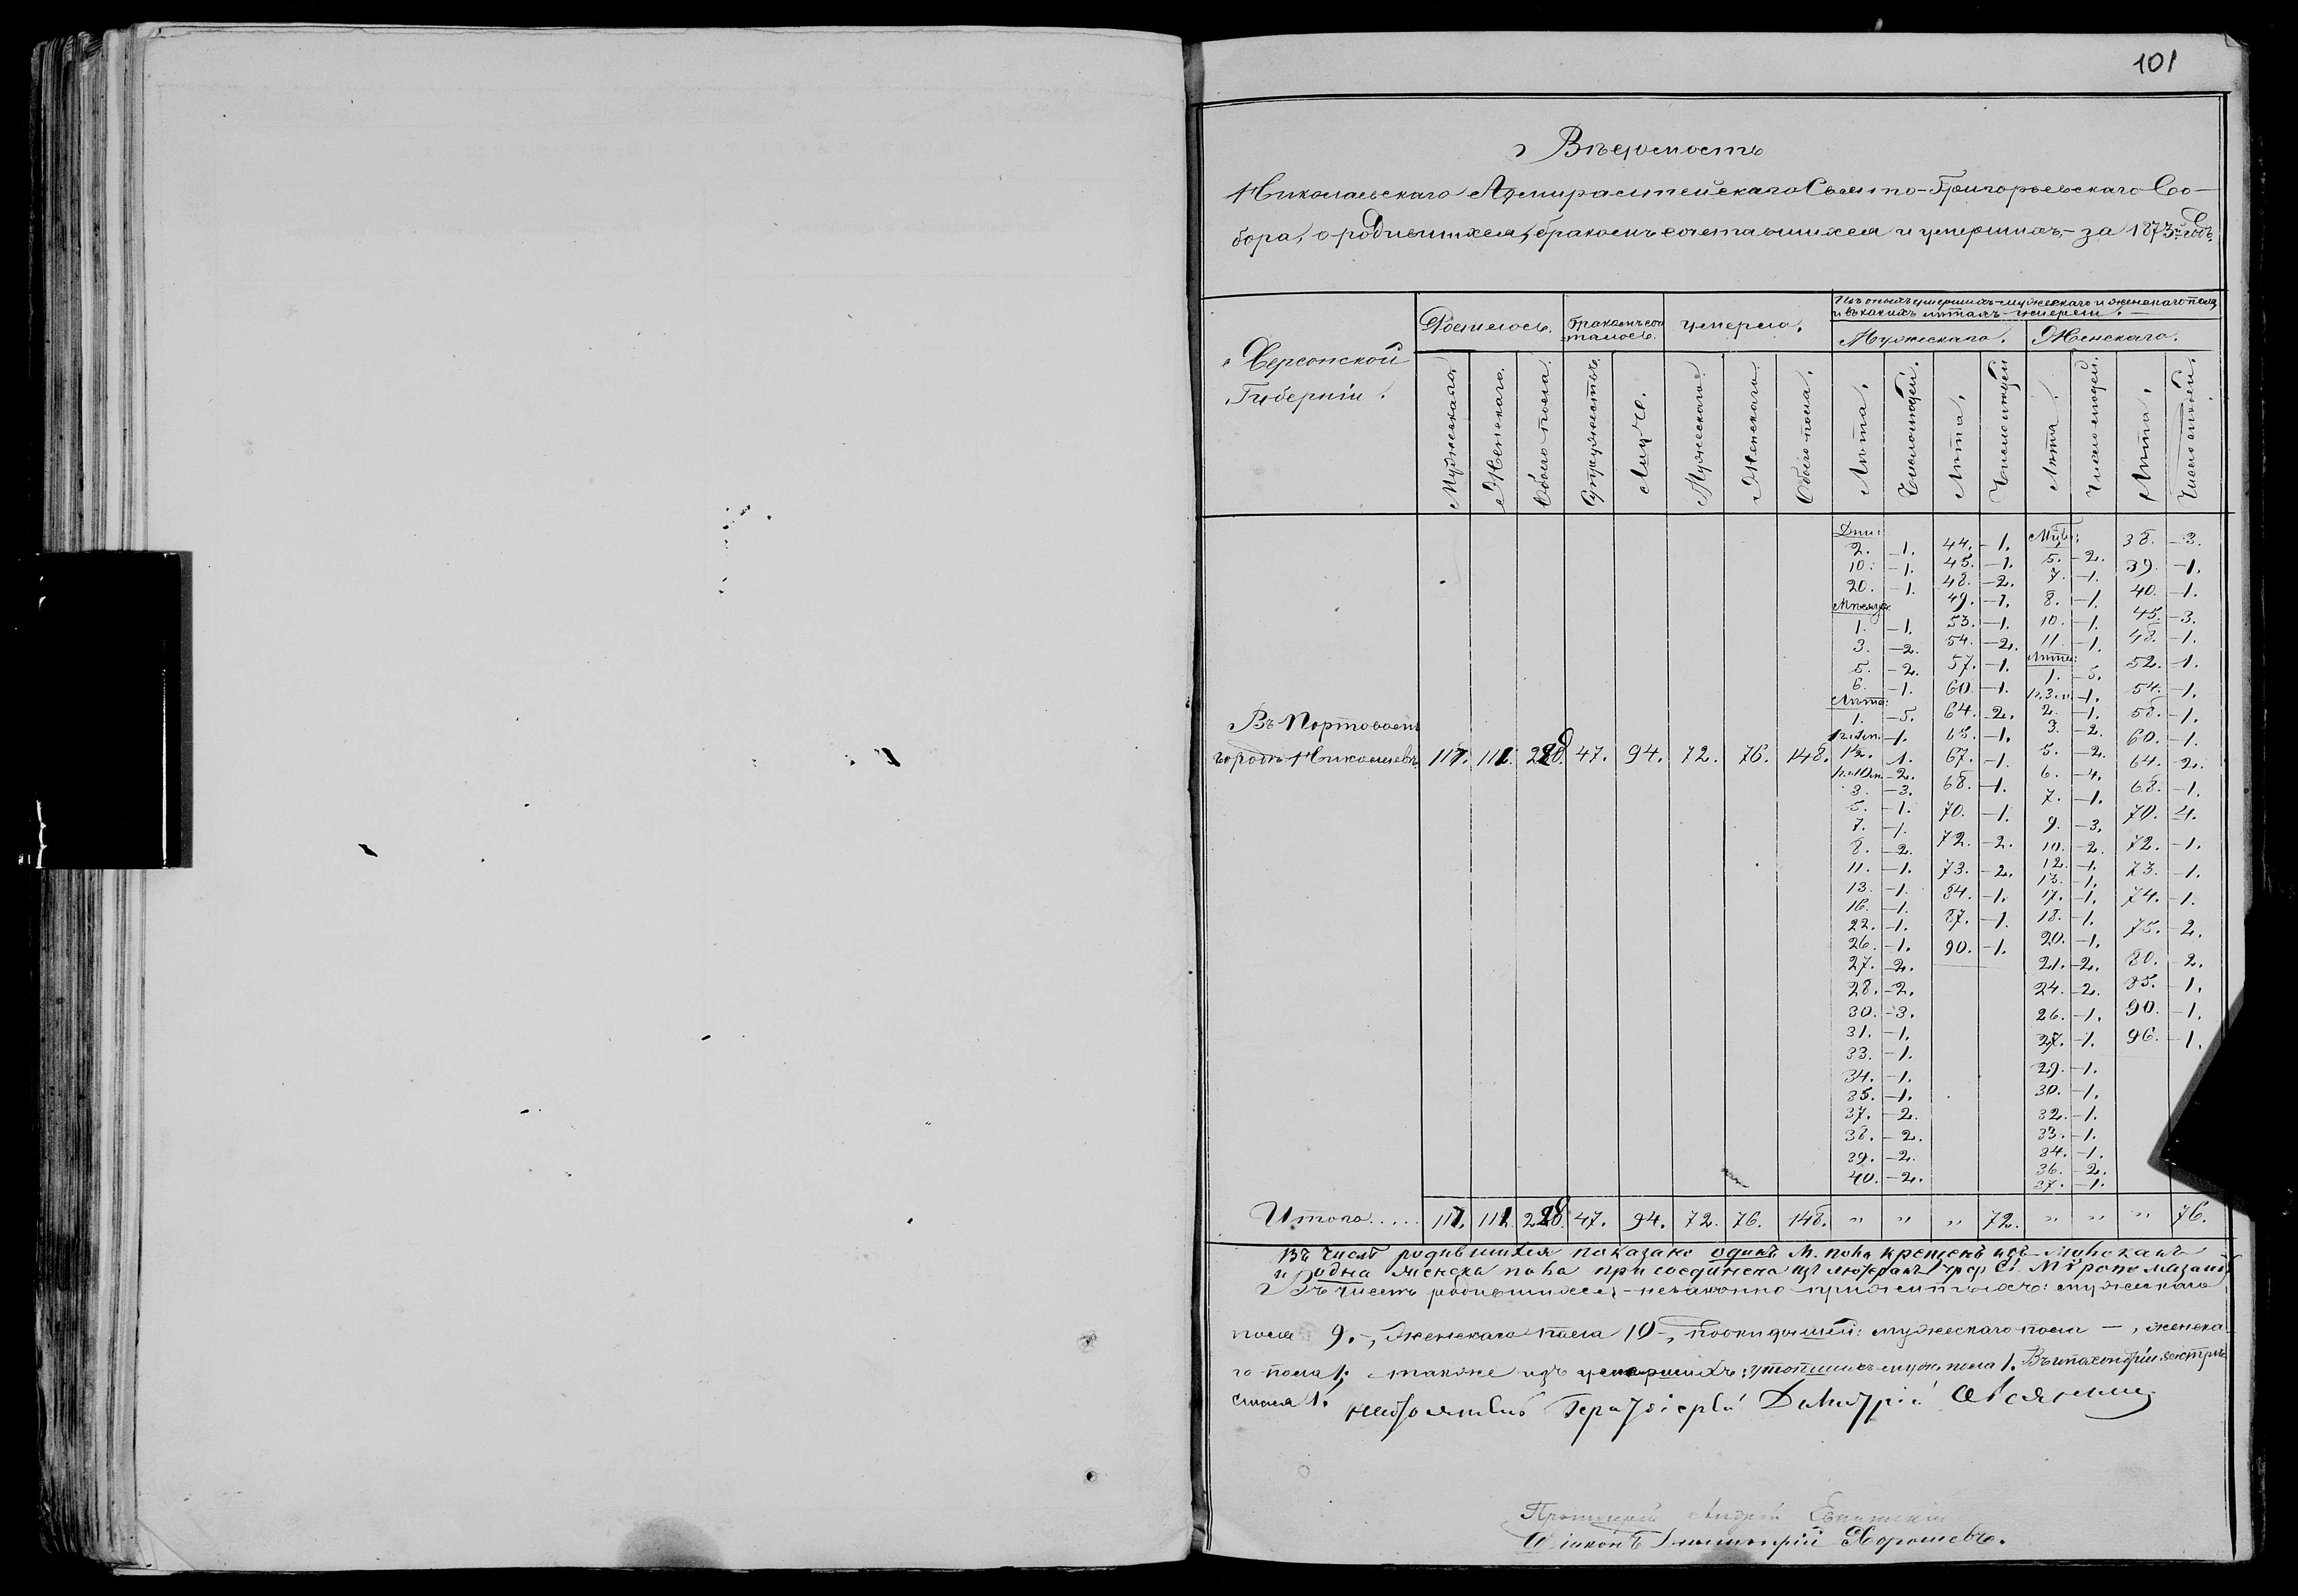 101
Вѣдомость
Николаевскаго Адмиралтейскаго Свято-Григорьевскаго Со-
бора, о родившихся, бракомъ сочетавшихся и умершихъ,- за 1873й годъ.
Херсонской
Губерніи.
Родилось.
Бракомъ соче
талось.
Умерло.
Изъ оныхъ умершихъ-мужескаго и женскаго пола,
и въ какихъ лѣтахъ-умерли.
Мужескаго.
Женскаго.
Мужескаго.
Женскаго.
Обоего пола.
Супружествъ.
Лицъ.
Мужескаго.
Женскаго.
Обоего пола.
Лѣта.
Число людей.
Лѣта.
Число людей
Лѣта.
Число людей.
Лѣта.
Число людей.
Дни: 44. -1. Мѣс: 38. -3.
2. -1. 45. -1. 5. -2. 39. -1.
10. -1. 48. -2. 7. -1. 40. -1.
20. -1. 49. -1. 8. -1. 45. -3.
Мѣсяцы: 53. -1. 10. -1. 48. -1.
1. -1. 54. -2. 11. -1. 52. -1.
3. -2. 57. -1. Лѣта: 54. -1.
5. -2. 60. -1. 1. -5. 58. -1.
6. -1. 64. -2. -1. 60. -1.
Лѣта: 65. -1. 2. -1. 64. -2.
1. -5. 67. -1. 3. -2. 68. -1.
-1. 68. -1. 5. -2. 70. -4.
-1. 70. -1. 6. -4. 72. -1.
-2. 72. -2. 7. -1. 73. -1.
3. -3. 73. -2. 9. -3. 74. -1.
5. -1. 84. -1. 10. -2. 75. -2.
7. -1. 87. -1. 12. -1. 80. -2.
8. -2. 90. -1. 13. -1. 85. -1.
11. -1. 17. -1. 90. -1.
13. -1. 18. -1. 96. -1.
16. -1. 20. -1.
22. -1. 21. -2.
26. -1. 24. -2.
27. -2. 26. -1.
28. -2. 27. -1.
30. -3. 29. -1.
31. -1. 30. -1.
33. -1. 32. -1.
34. -1. 33. -1.
35. -1. 34. -1.
37. -2. 36. -2.
38. -2. 37. -1.
39. -2.
40. -2.
Въ Портовомъ
городѣ Николаевѣ. 117. 111. 228. 47. 94. 72. 76. 148.
Итого..... 117. 111. 228. 47. 94. 72. 76. 148. " " " 72. " " " 76.
Въ числѣ родившихся показано одинъ М. пола крещенъ изъ
и одна женска пола присоединена изъ чрез Св. Мѵропомазаніе
Въ числѣ родившихся-незаконно прижитыхъ: мужескаго
пола 9.-, женскаго пола 10-, подкидышей: мужескаго пола -, женска
го пола 1; также изъ умершихъ: утопшихъ муж. пола 1. Въ ипохондріи застрѣ-
лился 1.
Димитрій
Протоіерей Андрей
Діаконъ Димитрій Хорошевъ.